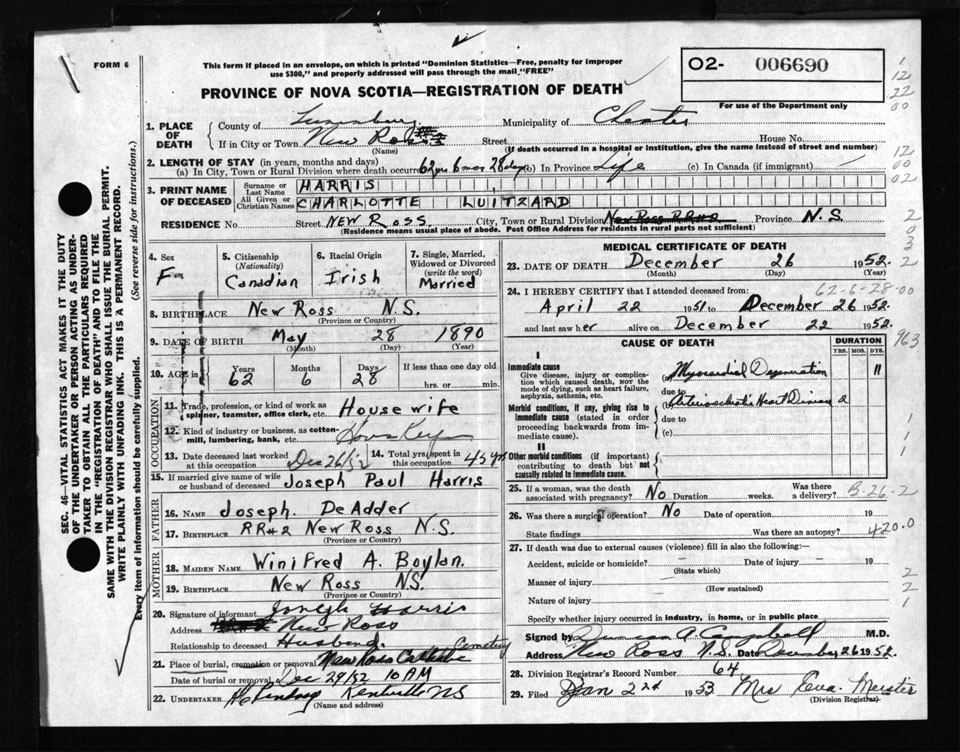 FORM 6
This form if placed in an envelope, on which is printed "Dominion Statistics—Free, penalty for improper
use $300," and properly addressed will pass through the mail "FREE"
PROVINCE OF NOVA SCOTIA—REGISTRATION OF DEATH
O2- 006690
For use of the Department only
1. PLACE OF DEATH
County of Lunenburg Municipality of Chester
If in City or Town New Ross Street House No.
(Name) (If death occurred in a hospital or institution, give the name instead of street and number)
2. LENGTH OF STAY (in years, months and days)
(a) In City, Town or Rural Division where death occurred 62 yrs 6 mos 28 days (b) In Province Life (c) In Canada (if immigrant)
3. PRINT NAME OF DECEASED
Surname or Last Name HARRIS
All Given or Christian Names CHARLOTTE LUITZARD
RESIDENCE No. Street NEW ROSS. City, Town or Rural Division New Ross RR#2 Province N.S.
(Residence means usual place of abode. Post Office Address for residents in rural parts not sufficient)
4. Sex F
5. Citizenship (Nationality) Canadian
6. Racial Origin Irish
7. Single, Married, Widowed or Divorced (write the word) Married
8. BIRTHPLACE New Ross N.S.
(Province or Country)
9. DATE OF BIRTH May 28 1890
(Month) (Day) (Year)
10. AGE in Years 62 Months 6 Days 28 If less than one day
hrs. or min.
OCCUPATION
11. Trade, profession, or kind of work as spinner, teamster, office clerk, etc. House wife
12. Kind of industry or business, as cotton-mill, lumbering, bank, etc.
13. Date deceased last worked at this occupation Dec 26/52
14. Total yrs. spent in this occupation 45 yrs
15. If married give name of wife or husband of deceased Joseph Paul Harris
FATHER
16. NAME Joseph. De Adder
17. BIRTHPLACE RR#2 New Ross N.S.
(Province or Country)
MOTHER
18. MAIDEN NAME Winifred A. Boylan.
19. BIRTHPLACE New Ross N.S.
(Province or Country)
20. Signature of informant Joseph Harris
Address New Ross
Relationship to deceased Husband.
21. Place of burial, cremation or removal New Ross Catholic Cemetery
Date of burial or removal Dec 29/52 10 AM
22. UNDERTAKER Kentville NS
(Name and address)
MEDICAL CERTIFICATE OF DEATH
23. DATE OF DEATH December 26 1952
(Month) (Day) (Year)
24. I HEREBY CERTIFY that I attended deceased from: 62-6-28-00
April 22 1951 to December 26 1952.
and last saw her alive on December 22 1952.
CAUSE OF DEATH DURATION
YRS. MOS. DYS.
I
Immediate cause
Give disease, injury or complication which caused death, not the mode of dying, such as heart failure, asphyxia, asthenia, etc.
(a) Myocardial Degeneration 11
due to
Morbid conditions, if any, giving rise to immediate cause (stated in order proceeding backwards from immediate cause).
(b) Arteriosclerotic Heart Disease 2
due to
(c)
II
Other morbid conditions (if important) contributing to death but not causally related to immediate cause.
25. If a woman, was the death associated with pregnancy? No Duration weeks. Was there a delivery? B-26-2
26. Was there a surgical operation? No Date of operation 19
State findings Was there an autopsy? 420.0
27. If death was due to external causes (violence) fill in also the following:—
Accident, suicide or homicide? Date of injury 19
(State which)
Manner of injury
(How sustained)
Nature of injury
Specify whether injury occurred in industry, in home, or in public place
Signed by Duncan A. Campbell M.D.
Address New Ross N.S. Date December 26 1952.
28. Division Registrar's Record Number 64
29. Filed Jan 2nd 1953 Mrs Eva. Meister
(Division Registrar)
SEC. 46—VITAL STATISTICS ACT MAKES IT THE DUTY
OF THE UNDERTAKER OR PERSON ACTING AS UNDERTAKER TO OBTAIN ALL THE PARTICULARS REQUIRED
IN THE "REGISTRATION OF DEATH" AND TO FILE THE
SAME WITH THE DIVISION REGISTRAR WHO SHALL ISSUE THE BURIAL PERMIT.
WRITE PLAINLY WITH UNFADING INK. THIS IS A PERMANENT RECORD.
Every item of information should be carefully supplied. (See reverse side for instructions.)
1
12
22
00
12
00
02
2
0
3
2
963
1
1
2
2
1